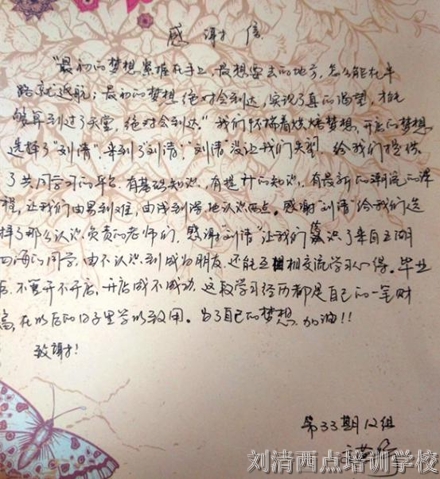 感谢信
"最初的梦想紧握在手上,最想要去的地方,怎么能在半
路就返航;最初的梦想绝对会到达,实现了真的渴望,才能
够算到过了天堂,绝对会到达"我们怀揣着烘焙梦想,开店的梦想
选择了"刘清",来到了刘清,"刘清"没让我们失望,给我们提供
了共同学习的平台,有基础知识,有提升的知识,有最新的潮流的课
程,让我们由易到难,由浅到深地认识西点。感谢"刘清"给我们选
择了那么认识负责的老师们,感谢"刘清"让我们 识了来自五湖
四海的同学,由不认识到成为朋友,还能互相交流学习心得。毕业
后,不管开不开店,开店成不成功,这段学习经历都是自己的一笔财
富,在以后的日子里学以致用。为了自己的梦想,加油!!
致谢!
第33期12组
刘清西点培训学校